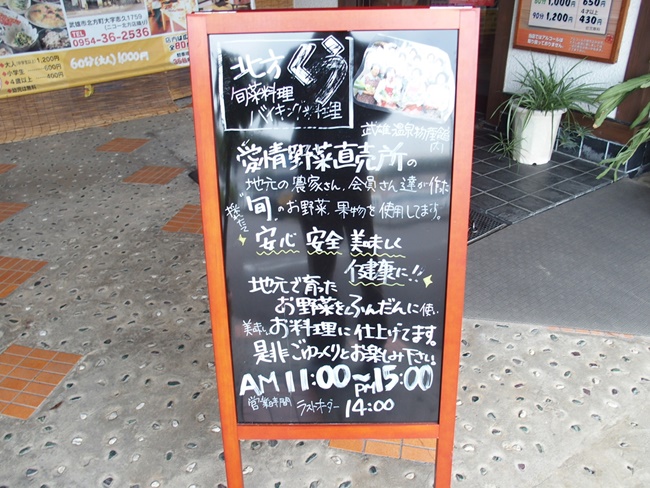 武雄市北方町大字志久1759
TEL 0954-36-2536
60分(大人)1,000円
1,000円 650円
90分 1,200円 430円
北方
くら
旬菜料理
バイキング料理
武雄温泉物産館
愛情野菜直売所の
地元の農家さん、会員さん達が作った
採れたて
"旬"のお野菜、果物を使用してます。
安心 安全 美味しく
健康に!!
地元で育った
お野菜をふんだんに使い
美味しいお料理に仕上げてます。
是非ごゆっくりとお楽しみ下さい。
AM11:00~PM15:00
営業時間 ラストオーダー 14:00